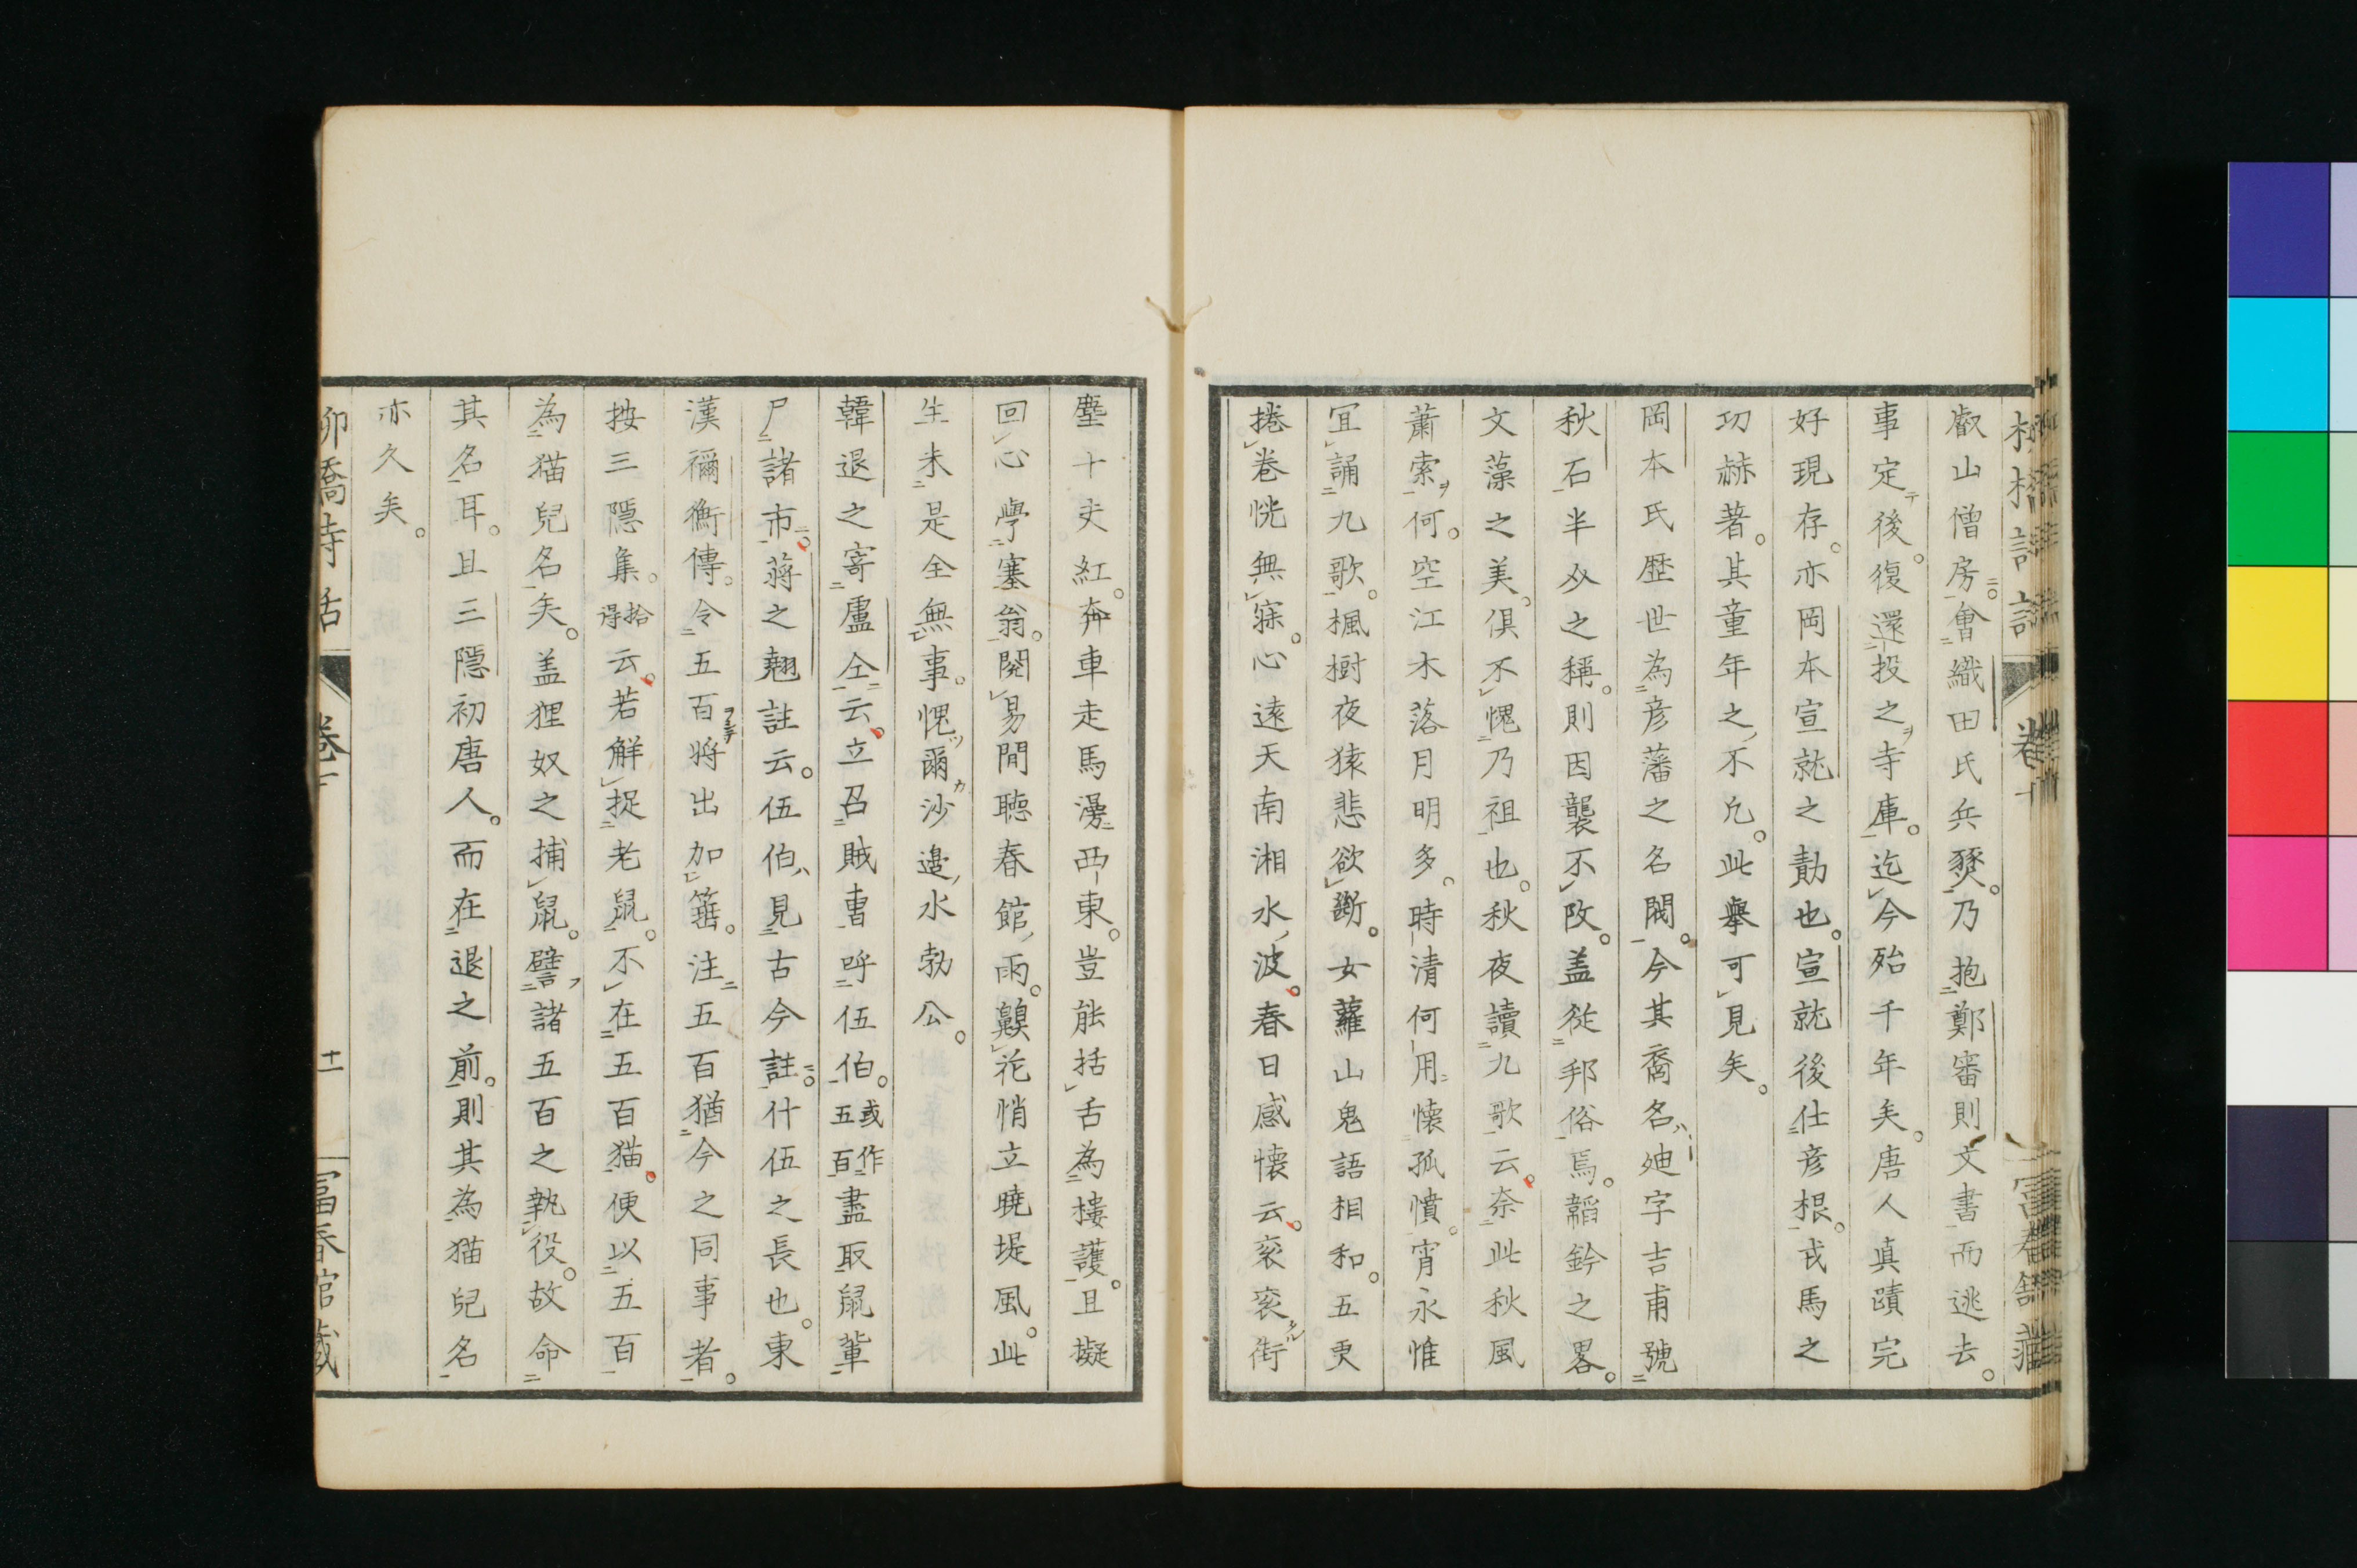 叡山僧房會織田氏兵燹乃抱鄭審則文書而逃去
事定後復還投之寺庫迄今殆千年矣唐人真蹟完
好現存亦岡本宣就之勣也宣就後仕彦根戎馬之
功赫著其童年之不凡此擧可見矣
岡本氏歴世為彦藩之名閥今其裔名迪字吉甫號
秋石半㕕之稱則因襲不改盖従邦俗焉韜鈐之畧
文藻之美俱不愧乃祖也秋夜讀九歌云奈此秋風
蕭索何空江木落月明多時清何用懐孤憤宵永惟
宜誦九歌楓樹夜猿悲欲斷女蘿山鬼語相和五更
捲巻恍無寐心遠天南湘水波春日感懐云衮衮街
塵十丈紅奔車走馬漫西東豈能括舌為樓護且擬
回心學塞翁閱易閒聴春館雨齅花悄立曉堤風此
生未是全無事愧爾沙邉水勃公
韓退之寄盧仝云立召賊曺呼伍伯或作五百盡取鼠軰
尸諸市蒋之翹註云伍伯見古今註什伍之長也東
漢禰衡傳令五百將出加箠注五百猶今之同事者
按三隠集拾得云若解捉老鼠不在五百猫便以五百
為猫兒名矣盖狸奴之捕鼠譬諸五百之執役故命
其名耳且三隠初唐人而在退之前則其為猫兒名
亦久矣
柳橋詩話 卷下 十一 富春館蔵